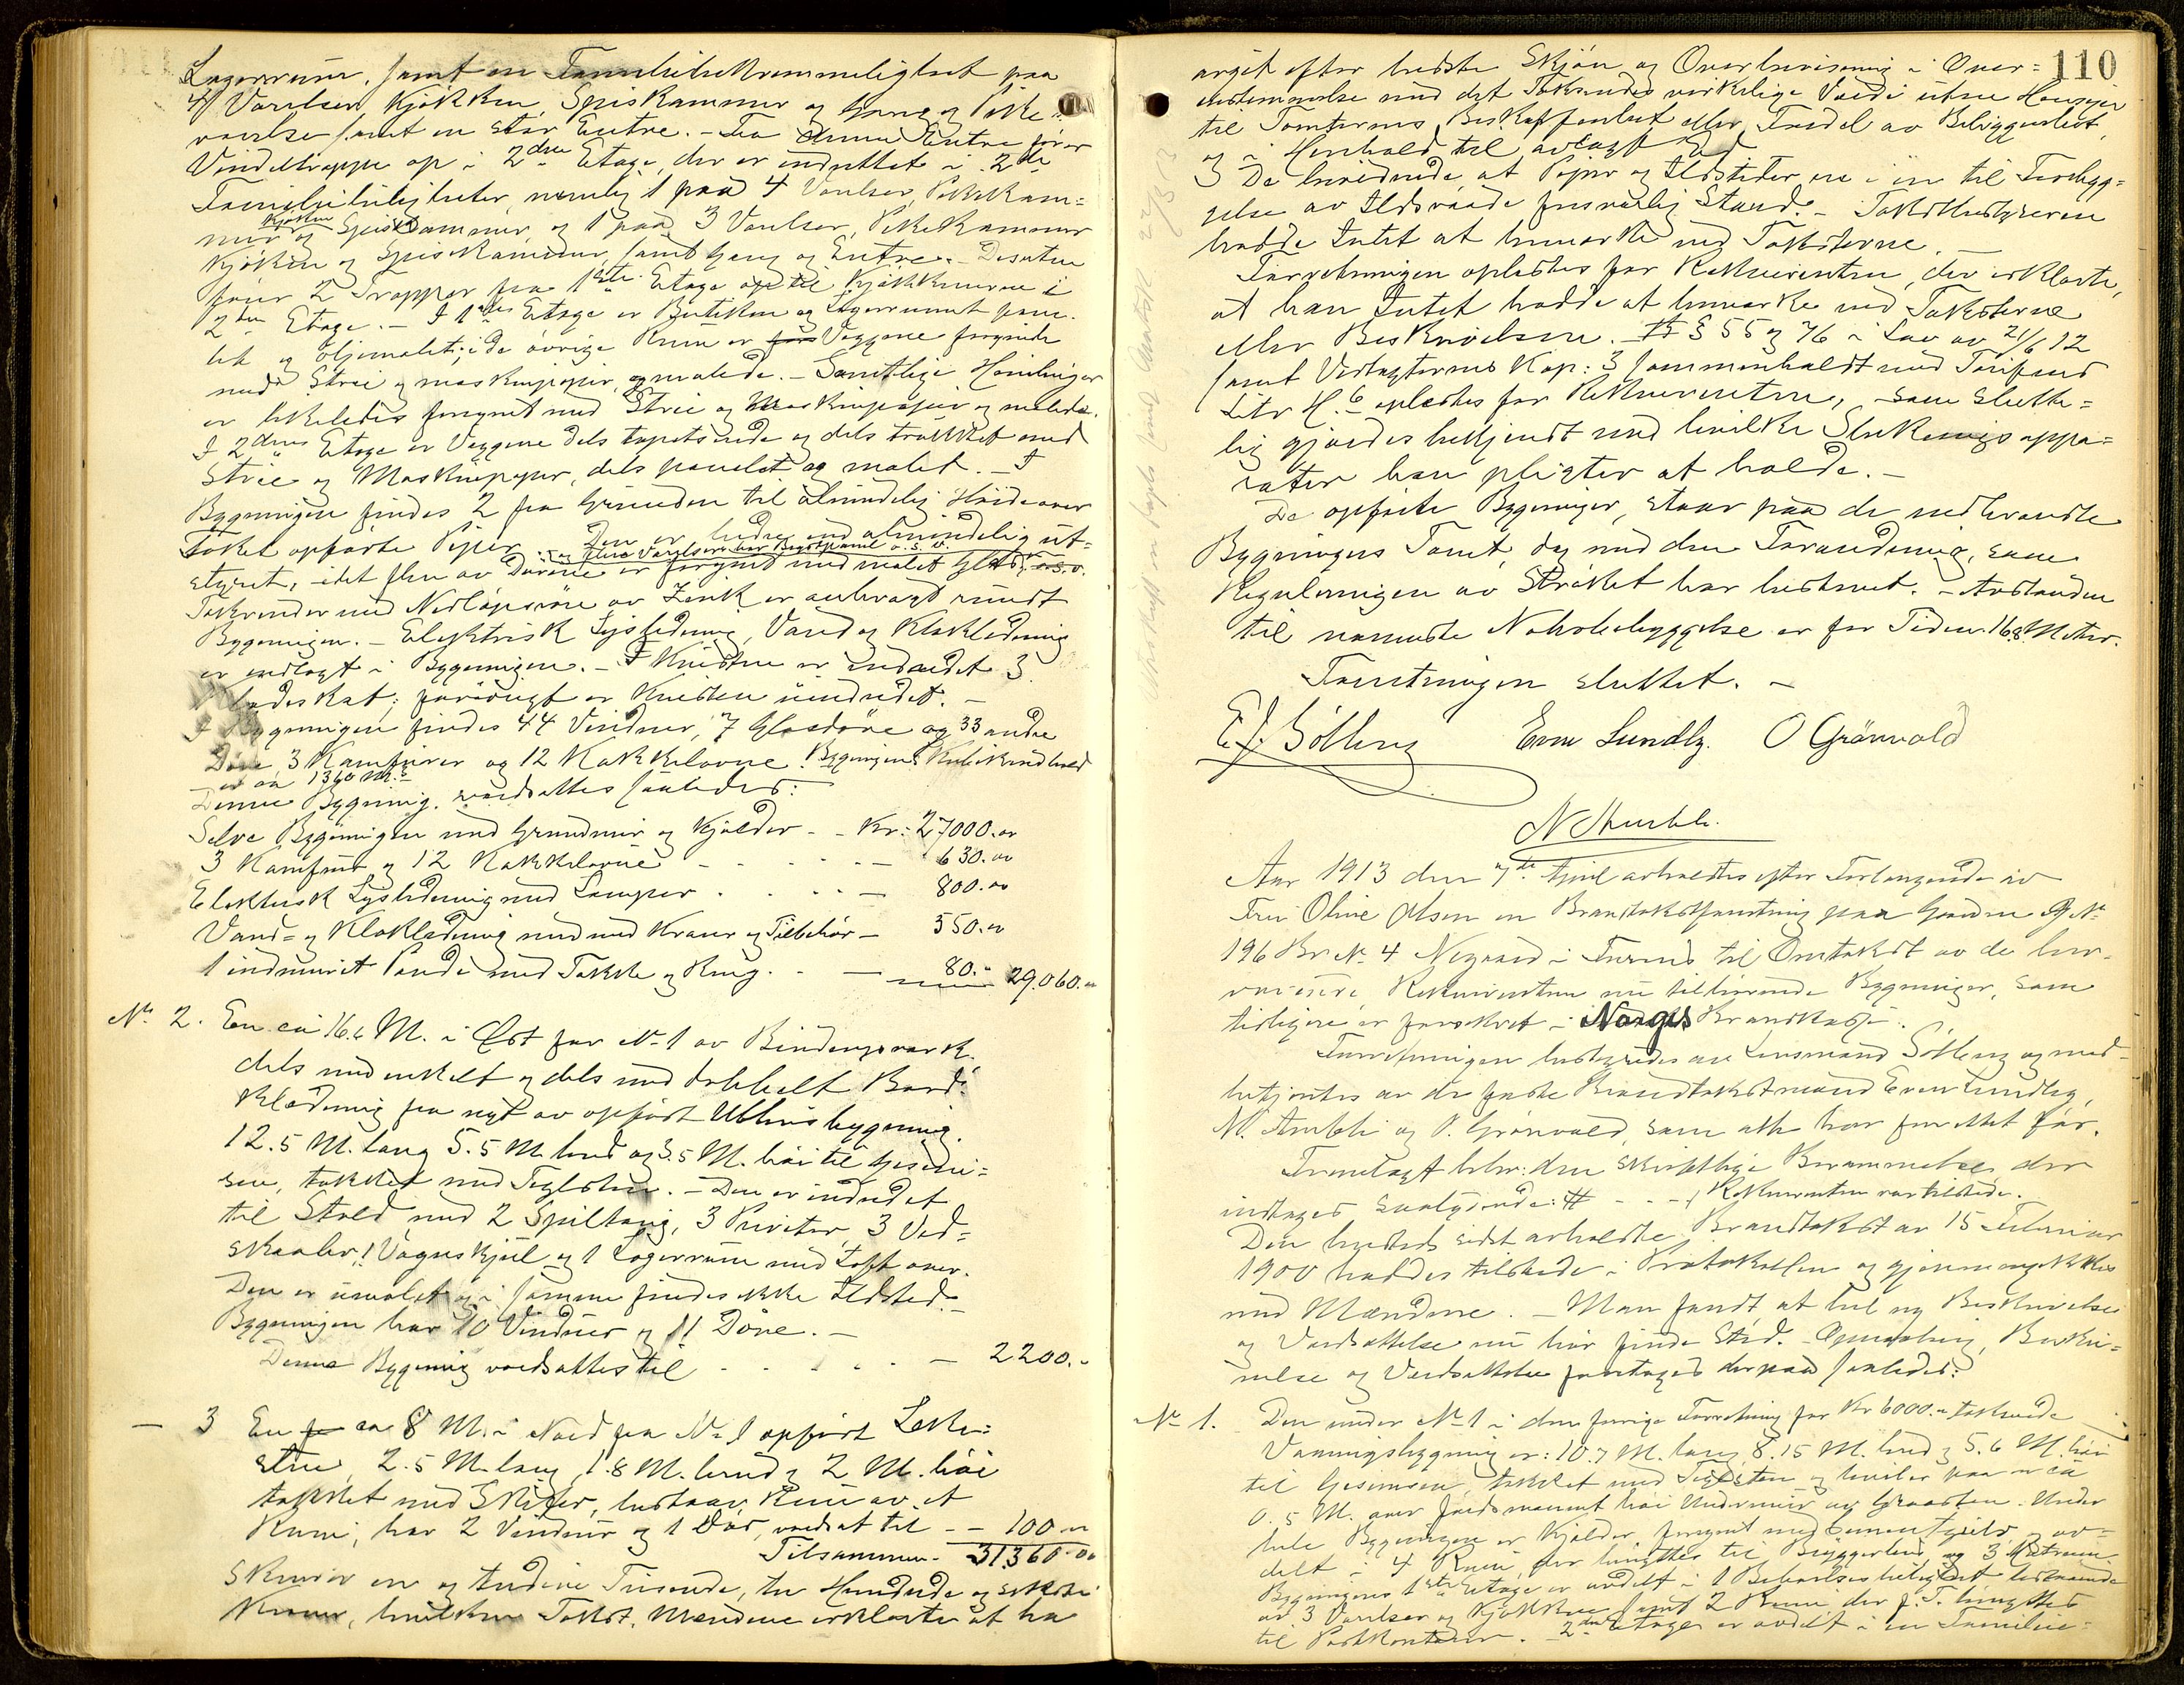 Lagerrum, samt en Familiebekvemmelighet paa
4 Værelser, Kjøkken, Spiskammer og Gang og Pike-
værelse samt en stor Entre. - Fra denne Entre fører
Vindeltrappe op i 2den Etage, der er indrettet i 2de
Familieleiligheter, nemlig 1 paa 4 Værelser, Pikekam=
mer Kjøkken og Spiskammer, og 1 paa 3 Værelser, Pikekammer
Kjøkken og Spiskammer, samt Gang og Entre. - Desuten
fører 2 Trapper fra 1ste Etage op til Kjøkknerne i
2den Etage. - I 1stes Etage er Butiken og Lagerrummet pane-
let og oljemalet; i de øvrige Rum er Væggene forsynede
med Strie og maskinpapir, og malede. - Samtlige Himlinger
er likeledes forsynet med Strie og Maskinpapir og malede.
I 2dens Etage er Væggene dels tapetserede og dels trukket med
Strie og Maskinpapir, dels panelet og malet. - I
Bygningen findes 2 fra Grunden til almindelig Høide over
Taket opførte Piper. Den er bedre end almindelig ut-
og flere Værelser har Brystpanel o.s.v.
styret, idet flere av Dørene er forsynet med malet Glas, o.s.v.
Takrender med Nedløpsrør av Zink er anbragt rundt
Bygningen. - Elektrisk Lysledning, Vand og Klokledning
er indlagt i Bygningen. - I Kvisten er indredet 3
; forøvrigt er Kvisten uindredet. -
I Bygningen findes 44 Vinduer, 7 Glasdøre og 33 andre
Døre, 3 Kamfiner og 12 Kakkelovne. Bygningens Kubikindhold
er ca 1360 M.3
Denne Bygning værdsættes saaledes:
Selve Bygningen med Grundmur og Kjælder - - Kr: 27000.00
3 Kamfiner og 12 Kakkelovne - - - - - - 630.00
Elektrisk Lysledning med Lamper - - - - - 800.00
Vand- og Klokledning med Kraner og Tilbehør - 550.00
1 indmuret Pande med Takke og Ring - - - 80.- 29.060.-
No 2. En ca 16.6 M. i Øst for No 1 av Bindingsverk
dels med enkelt og dels med dobbelt Bord-
klædning fra nyt av opført Uthusbygning.
12.5 M. lang 5.5 M. bred og 3.5 M. høi til Gesim=
sen, tækket med Taglsten. - Den er indredet
til Stald med 2 Spiltaug, 3 Priveter, 3 Ved=
skaaler, 1 Vognskjul og 1 Lagerrum med Loft over.
Den er umalet og i samme findes ikke Ildsted. -
Bygningen har 10 Vinduer og 11 Døre. -
Denne Bygning værdsættes til - - - - - 2200.-
- 3 En ca 8 M. i Nord fra No 1 opført Leke=
stue, 2.5 M. lang, 1.8 M. bred og 2 M. høi
tækket med Skifer, bestaar kun av et
Rum, har 2 Vinduer og 1 Dør, værdsat til - - 100.00
Tilsammen - 31360.00
Skriver en og tredive Tusende, tre Hundrede og seksti
Kroner, hvilken Takst Mændene erklærte at ha
110
avgit efter bedste Skjøn og Overbevisning i Over=
ensstemmelse med det Takseredes virkelige Værdi uten Hensyn
til Tomternes Beskaffenhet eller Fordel av Beliggenhet,
og i Henhold til avlagt Ed
De bevidnede, at Piper og Ildsteder er i en til Forebyg=
gelse av Ildsvaade forsvarlig Stand. - Takstbestyreren
hadde Intet at bemerke ved Taksterne. -
Forretningen oplæstes for Rekvirenten, der erklærte,
at han Intet hadde at bemerke ved Taksterne
eller Beskrivelsen. § 55 og 76 i Lov av 21/6 12
samt Vedtægternes Kap: 3 sammenholdt med Tarifens
Litr H.6 oplæstes for Rekvirenten, som slutte=
lig gjordes bekjendt med hvilke Slukningsappa=
rater han pligter at holde. -
De opførte Bygninger, staar paa de nedbrændte
Bygningers Tomt, dog med den Forandring, som
Reguleringen av Strøket har bestemt. - Avstanden
til nærmeste Nabobebyggelse er for Tiden 16.8 Meter.
Forretningen sluttet. -
E.J. Sølberg Even Lundby. O Grønvold
N Aurbli.
Aar 1913 den 7de April avholdtes efter Forlangende av
Fru Oline Olsen en Brandtakstforretning paa Gaarden G No
196 Br No 4 Nygaard i Furnes til Omtakst av de her-
værende Rekvirenten nu tilhørende Bygninger, som
tidligere er forsikret i Norges Brandkasse.
Forretningen bestyredes av Lensmand Sølberg og med-
betjentes av de faste Brandtakstmænd Even Lundby,
N. Aurbli og O. Grønvold, som alle har forrettet før.
Fremlagt blev: den skriftlige Berammelse der
indtages saalydende: # - - - Rekvirenten var tilstede.
Den herteds sidst avholdte Brandtakst av 15 Februar
1900 haddes tilstede i Protokollen og gjennemgikkes
med Mændene. - Man fandt, at hel ny Beskrivelse
og Værdsættelse nu bør finde Sted. Opmaaling, Beskri=
velse og Værdsættelse foretages derpaa saaledes:
No 1. Den under No 1 i den forrige Forretning for Kr 6000.- takserede
Vaaningsbygning er: 10.7 M. lang, 8.15 M. bred og 5.6 M. høi
til Gesimsen, tækket med Taglsten og hviler paa en ca
0.5 M. over Jordsmonnet høi Undermur av Graasten. Under
hele Bygningen er Kjælder, forsynet med Cementgulv og av=
delt i 4 Rum, der benyttes til Bryggerhus og 3 Matrum.
Bygningens 1ste Etage er avdelt i 1 Beboelsesleilighet bestaaende
av 3 Værelser og Kjøkken samt 2 Rum, der f. T. benyttes
til Postkontorer. - 2den Etage er avdelt i en Familie=